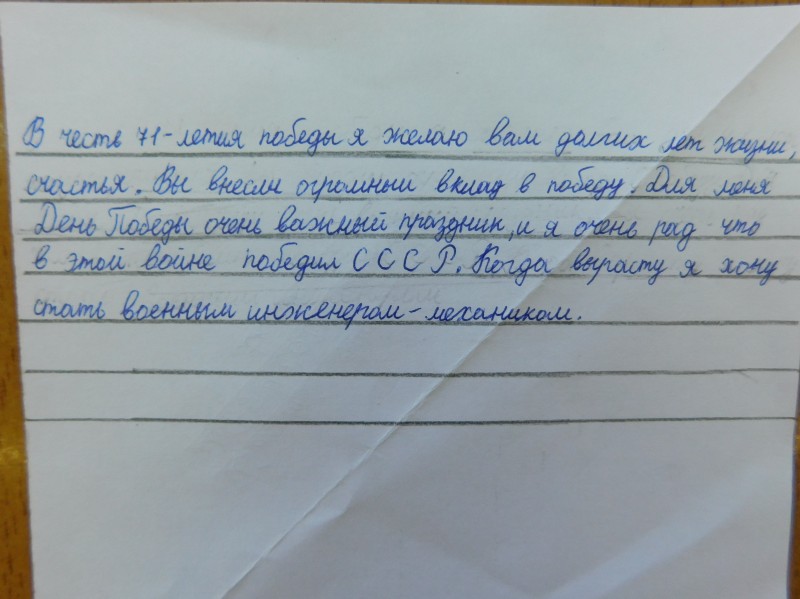 В честь 71-летия победы я желаю вам долгих лет жизни,
счастья. Вы внесли огромный вклад в победу. Для меня
День Победы очень важный праздник, и я очень рад что
в этой войне победил СССР. Когда вырасту я хочу
стать военным инженером-механиком.